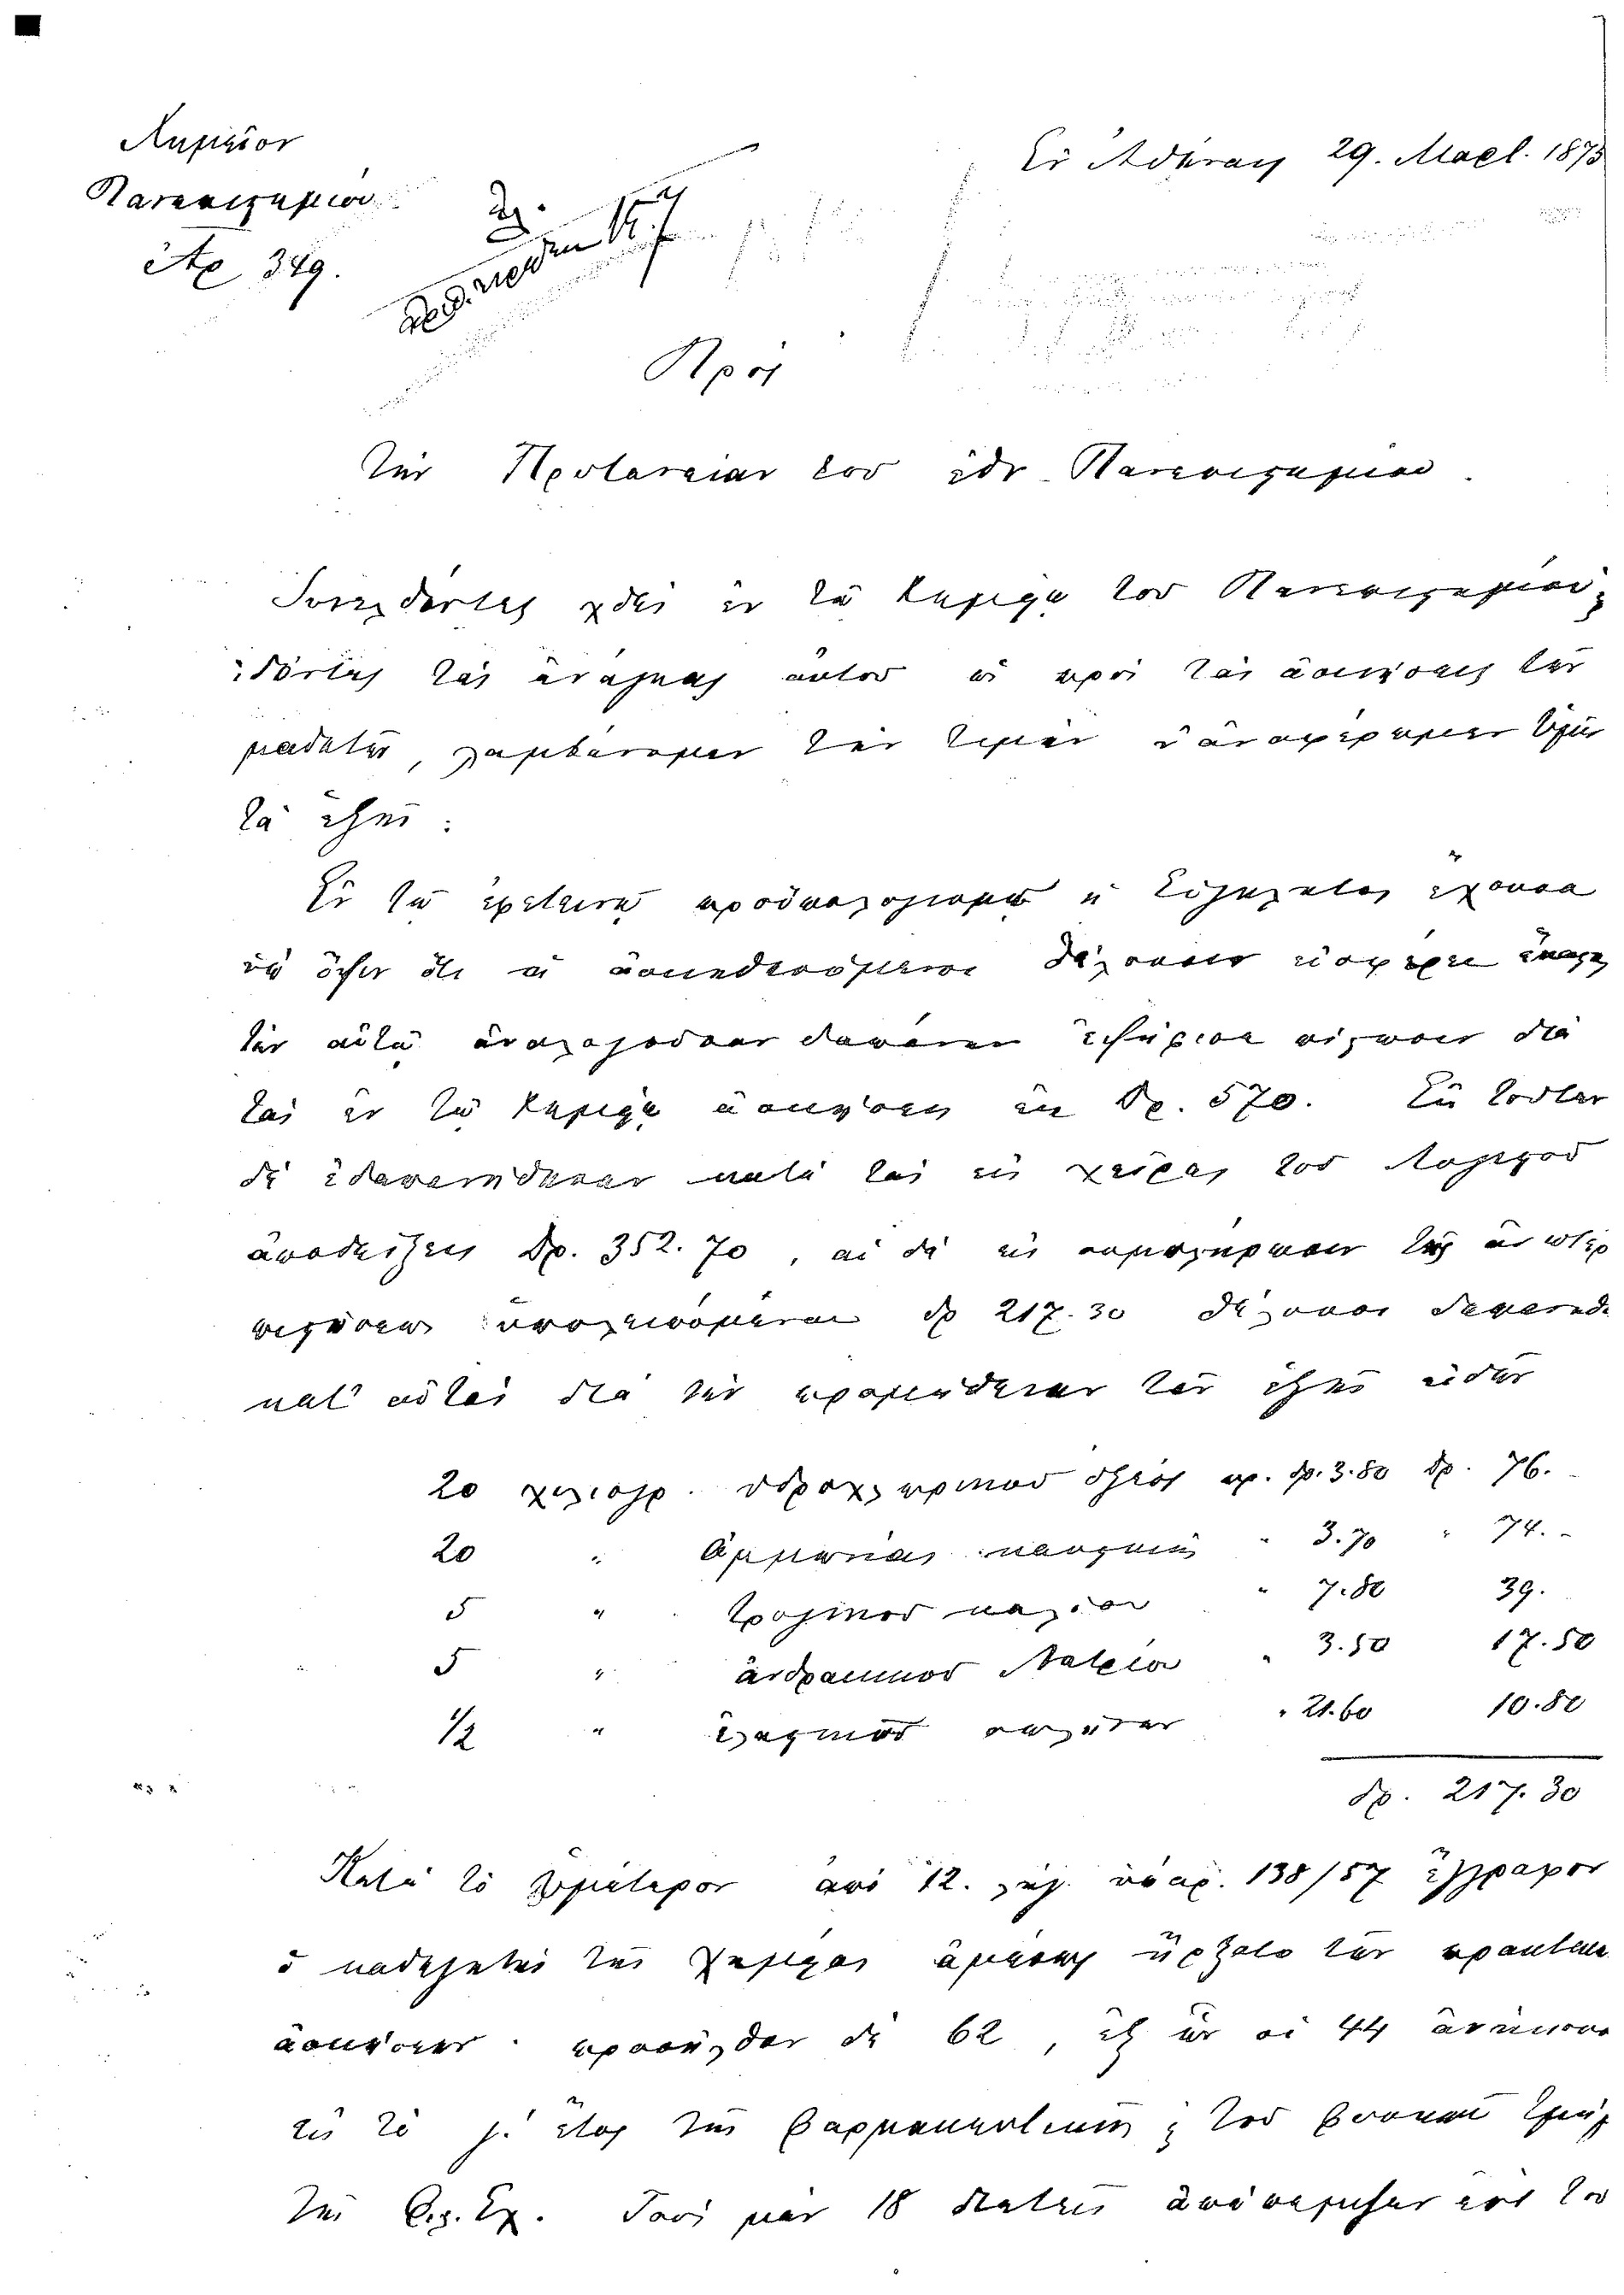 Χημεῖον
Πανεπιστημίου
Ἀρ. 349.
Ἐν Ἀθήναις 29. Μαρτ. 1875
Πρὸς
Τὴν Πρυτανείαν τοῦ ἐθν. Πανεπιστημίου.
Συνελθόντες χθὲς ἐν τῷ Χημείῳ τοῦ Πανεπιστημίου,
ἰδόντες τὰς ἀνάγκας αὐτοῦ πρὸς τὰς ἀσκήσεις τῶν
μαθητῶν, λαμβάνομεν τὴν τιμὴν ἀναφέρωμεν Ὑμῖν
τὰ ἑξῆς:
Ἐν τῷ ἐφετεινῷ προϋπολογισμῷ ἡ Σύγκλητος ἔχουσα
ὑπ' ὄψιν ὅτι οἱ ἀσκηθησόμενοι θέλουσιν εἰσφέρει ἕκαστος
τὴν αὐτῷ ἀναλογοῦσαν δαπάνην ἐψήφισε πίστωσιν διὰ
τὰς ἐν τῷ Χημείῳ ἀσκήσεις ἐκ Δρ. 570. Ἐκ τούτων
δὲ ἐδαπανήθησαν κατὰ τὰς εἰς χεῖρας τοῦ
ἀποδείξεις Δρ. 352.70, αἱ δὲ εἰς συμπλήρωσιν τῆς ἀνωτέρ
πιστώσεως ὑπολειπόμεναι δρ 217.30 θέλουσι δαπανηθ
κατ' αὐτὰς διὰ τὴν προμήθειαν τῶν ἑξῆς εἰδῶν
20 χιλιογρ. ὑδροχλωρικοῦ ὀξέος πρ. δρ. 3.80 δρ. 76.-
20 " Ἀμμωνίας καυστικῆς " 3.70 " 74.-
5 " τρυγικοῦ καλίου " 7.80 39.
5 " ἀνθρακικοῦ Νατρίου " 3.50 17.50
1/2 " " 21.60 10.80
δρ. 217.30
Κατὰ τὸ ὑμέτερον ἀπὸ 12. ὑπ' ἀρ. 138/57 ἔγγραφον
ὁ καθηγητὴς τῆς Χημείας ἀμέσως ἤρξατο τῶν πρακτικῶ
ἀσκήσεων· προσῆλθον δὲ 62, ἐξ ὧν οἱ 44 ἀνήκουσι
εἰς τὸ γ' ἔτος τῆς Φαρμακευτικῆς τοῦ φυσικοῦ τμήμ
τῆς Φιλ. Σχ. Τοὺς μὲν 18 ἀπὸ τοῦ